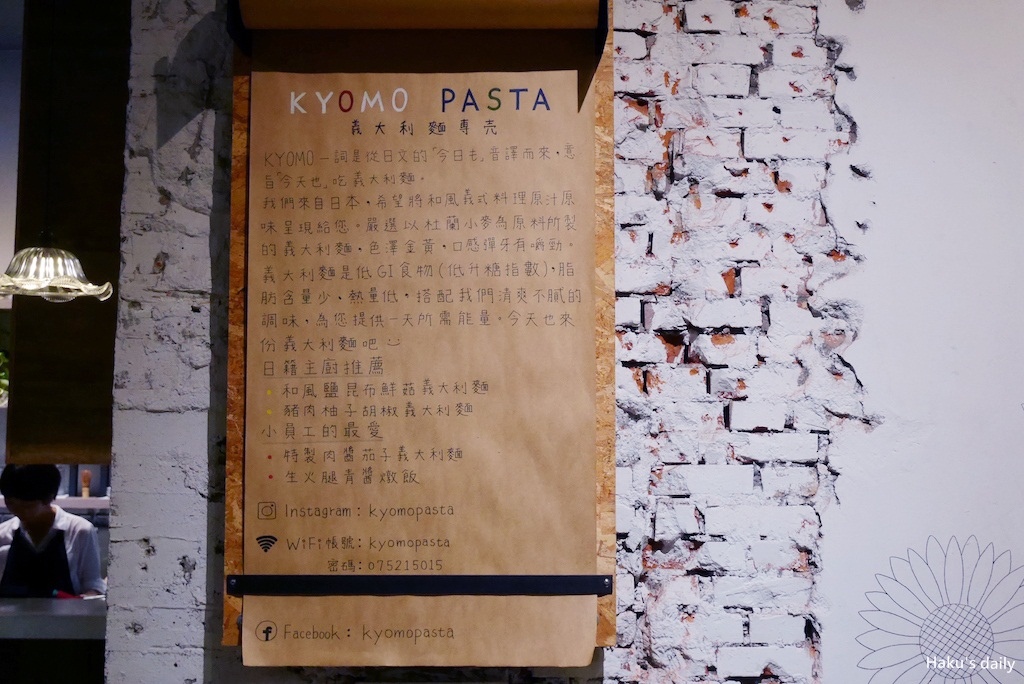 KYOMO PASTA
義大利麵專売
KYOMO一詞是從日文的「今日も」音譯而來,意
旨「今天也」吃義大利麵。
我們來自日本,希望將和風義式料理原汁原
味呈現給您。嚴選以杜蘭小麥為原料所製
的義大利麵,色澤金黃,口感彈牙有嚼勁。
義大利麵是低GI食物(低升糖指數),脂
肪含量少、熱量低,搭配我們清爽不膩的
調味,為您提供一天所需能量。今天也來
份義大利麵吧
日籍主廚推薦
和風鹽昆布鮮菇義大利麵
豬肉柚子胡椒義大利麵
小員工的最愛
特製肉醬茄子義大利麵
生火腿青醬燉飯
Instagram:kyomopasta
WiFi帳號:kyomopasta
密碼:075215015
Facebook:kyomopasta
Haku's daily